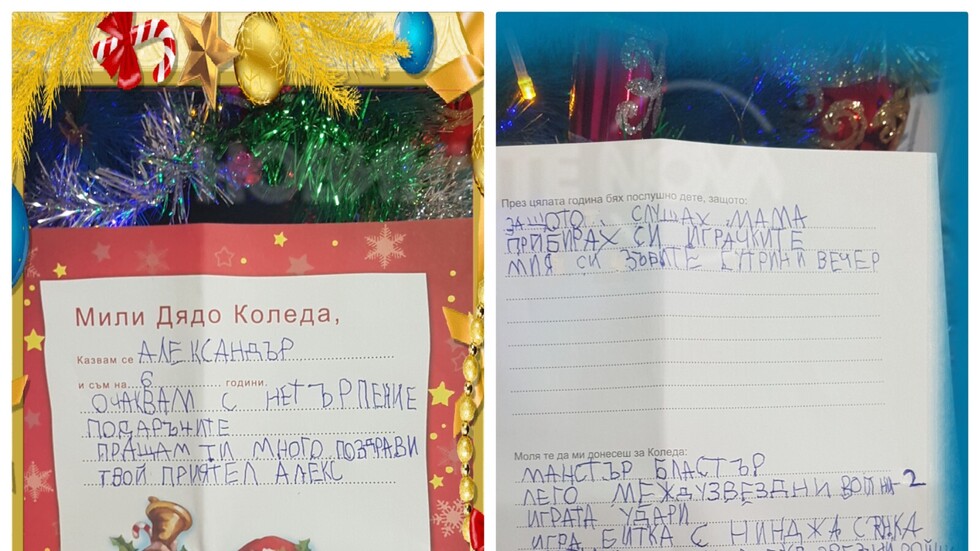 Мили Дядо Коледа,
Казвам се АЛЕКСАНДЪР
и съм на 6 години.
ОЧАКВАМ С НЕТЪРПЕНИЕ
ПОДАРЪЧИТЕ
ПРАЩАМ ТИ МНОГО ПОЗДРАВИ
ТВОЙ ПРИЯТЕЛ АЛЕКС
През цялата година бях послушно дете, защото:
ЗАЩОТО СЛУШАХ МАМА
ПРИБИРАХ СИ ИГРАЧКИТЕ
МИЯ СИ ЗЪБИТЕ СУТРИН И ВЕЧЕР
Моля те да ми донесеш за Коледа:
МАНСТЪР БЛАСТЪР
ЛЕГО МЕЖДУЗВЕЗДНИ ВОЙНИ-2
ИГРАТА УДАРИ
ИГРА БИТКА С НИНДЖА